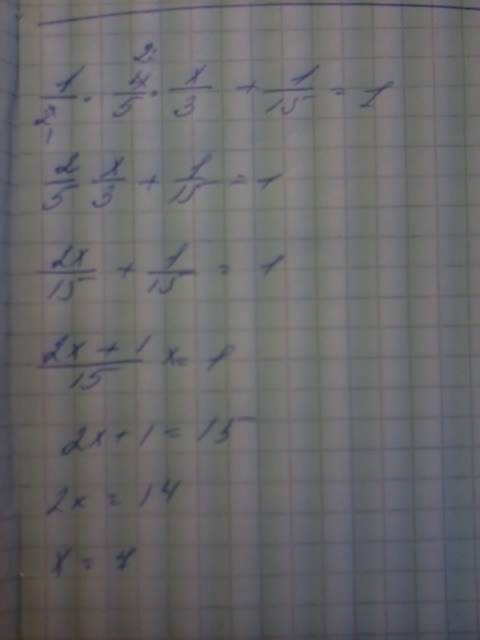 1/2 · 4/5 · x/3 + 1/15 = 1
2/5 · x/3 + 1/15 = 1
2x/15 + 1/15 = 1
2x + 1/15 = 1
2x + 1 = 15
2x = 14
x = 7